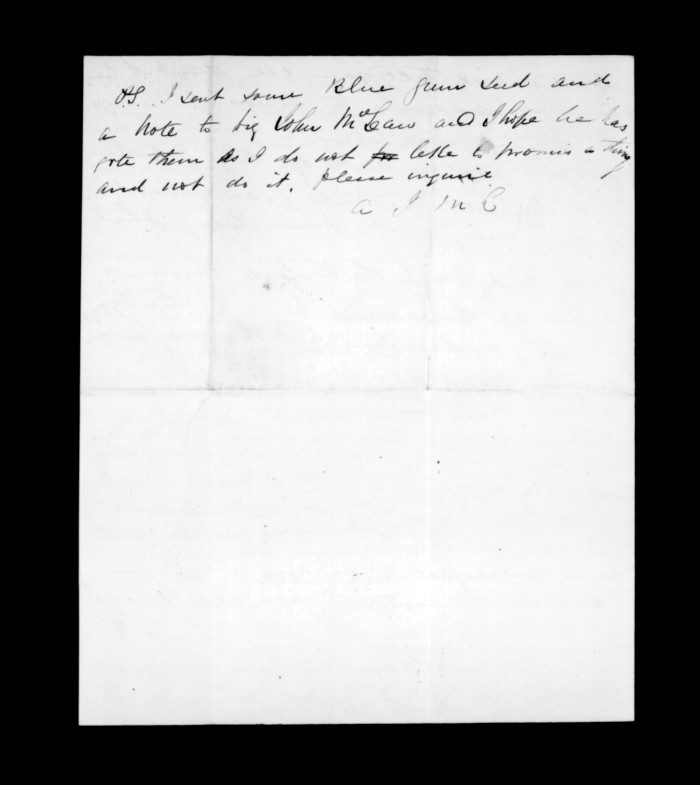 P.S. I sent some Blue gum seed and
a Note to big John McCaw and I hope he has
gote them as I do not like to promis a thing
and not do it. Please inquire
A J M C